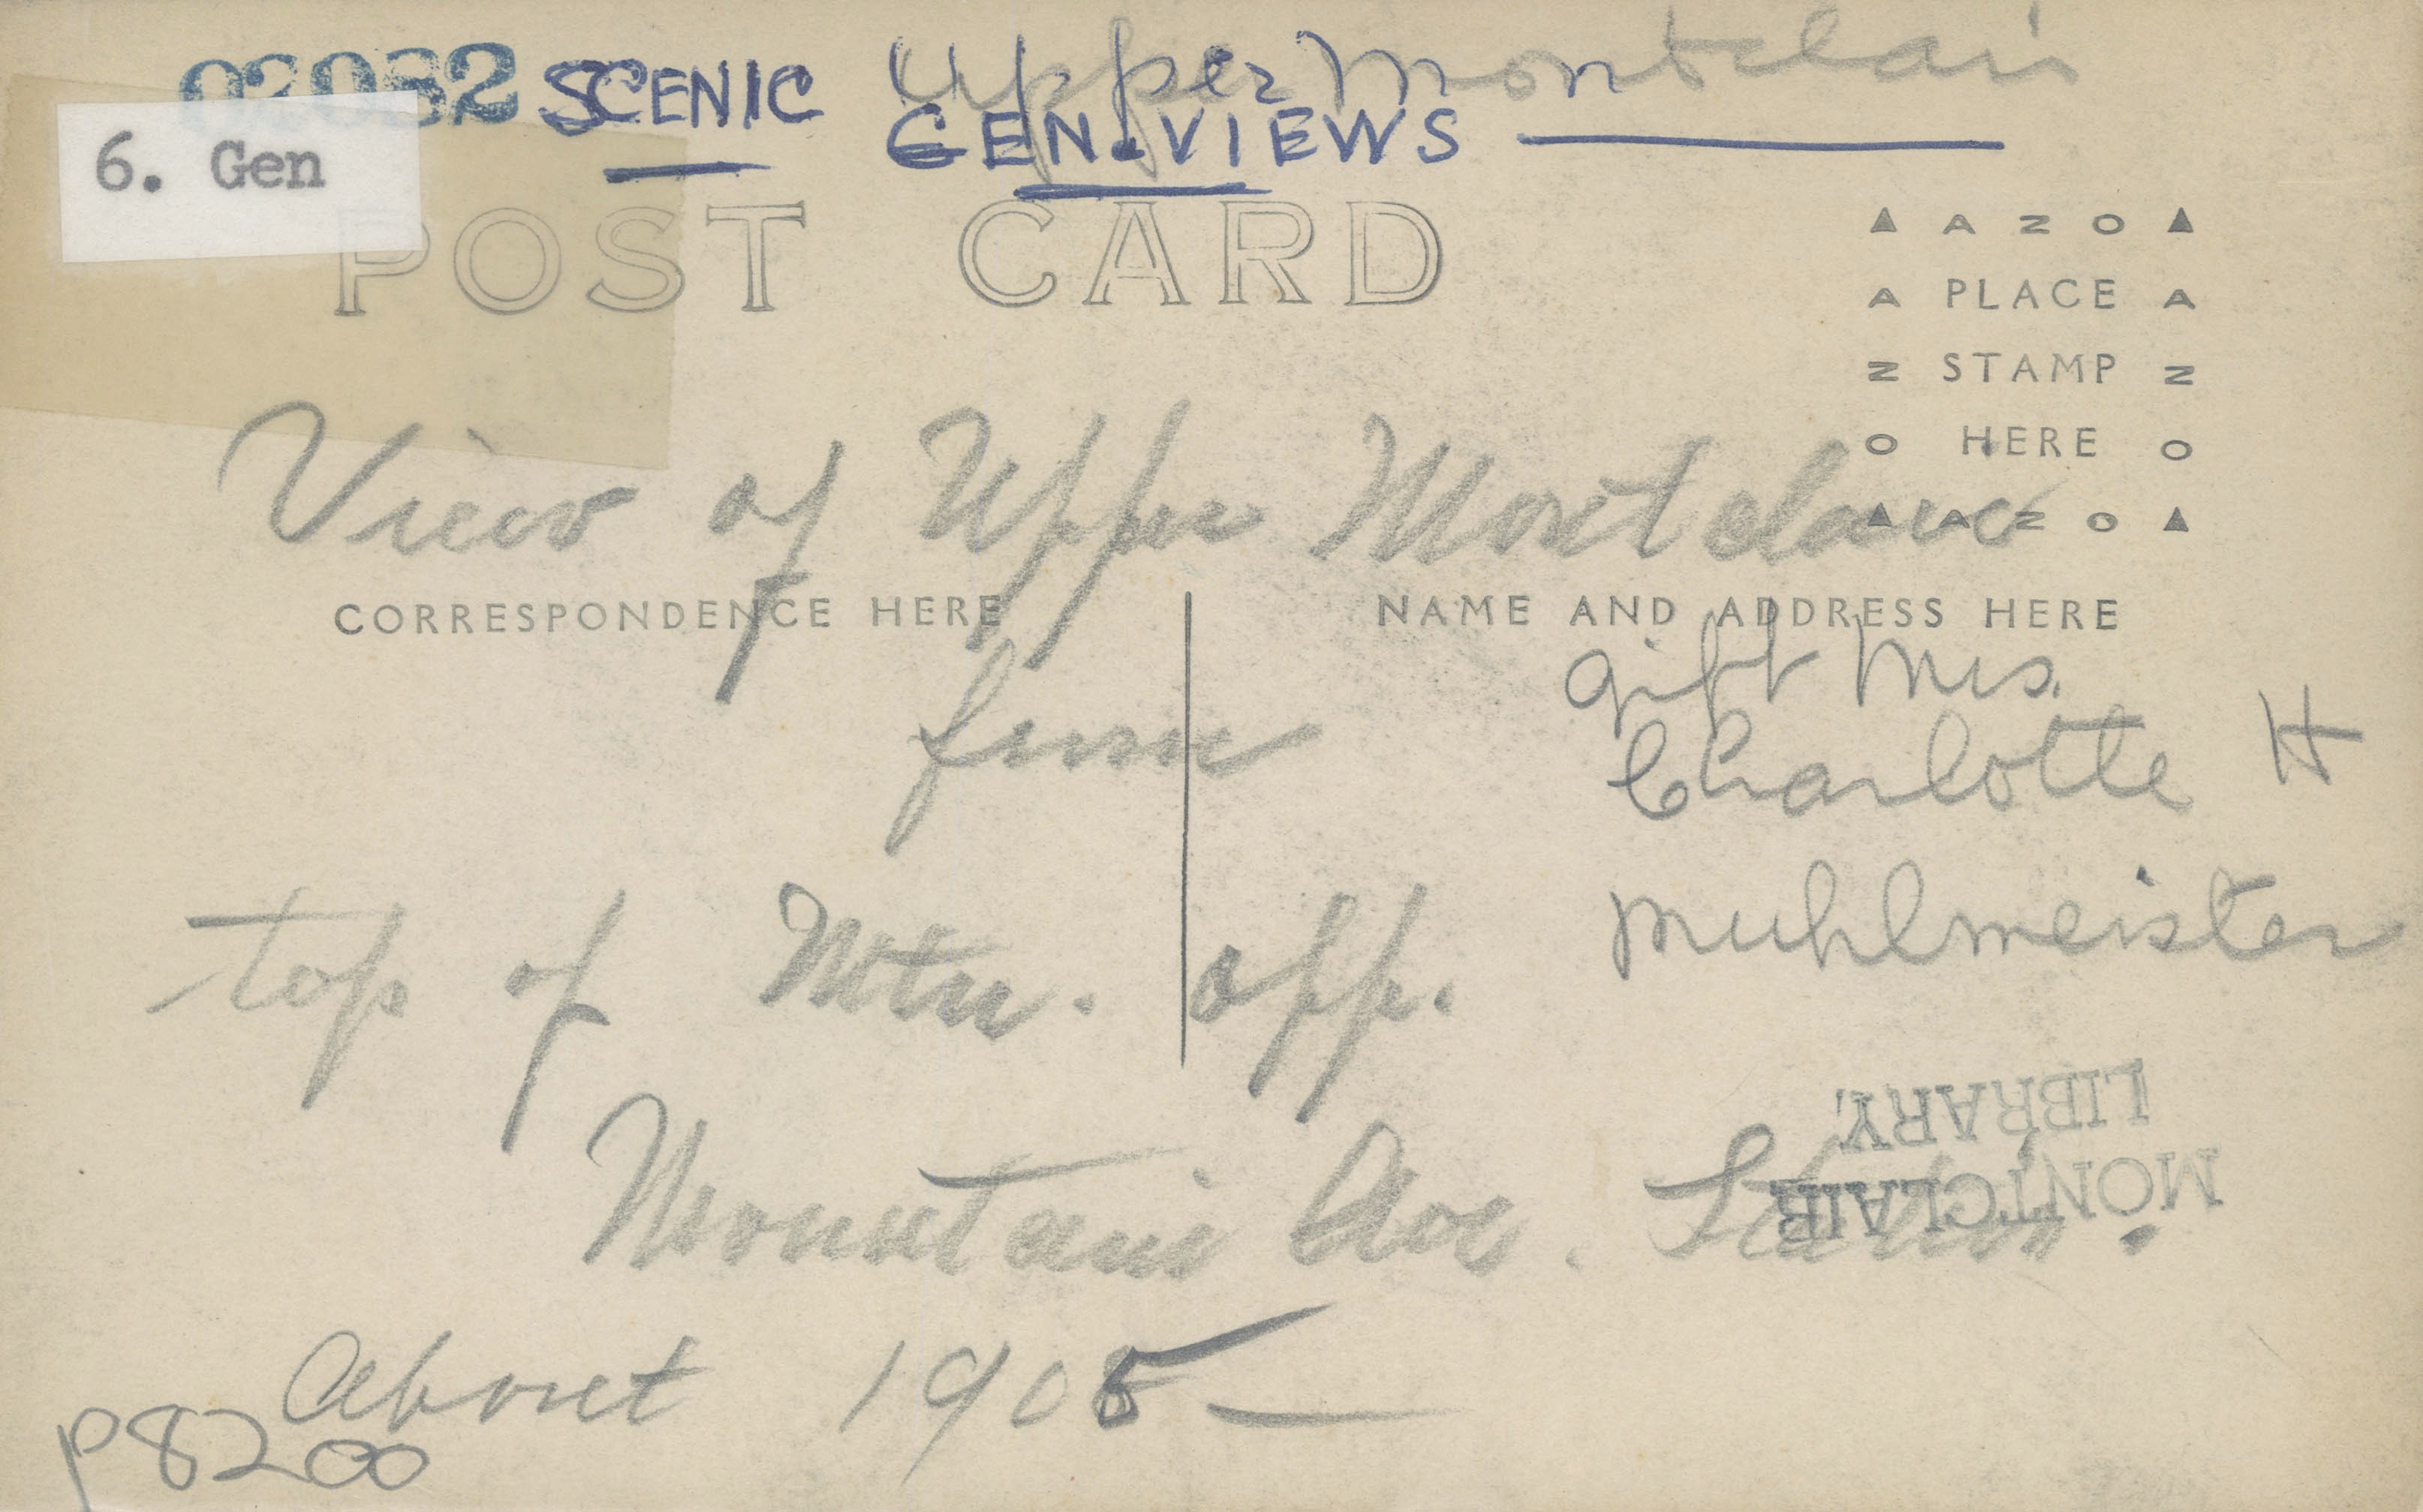 02082 SCENIC Upper Montclair
GEN. VIEWS
6. Gen
POST CARD
AZO
PLACE
STAMP
HERE
AZO
View of Upper Montclair
CORRESPONDENCE HERE
NAME AND ADDRESS HERE
from
gift Mrs.
Charlotte H
Muhlmeister
top of Mtn. opp.
MONTCLAIR
LIBRARY.
Mountain Ave.
About 1905
P8200